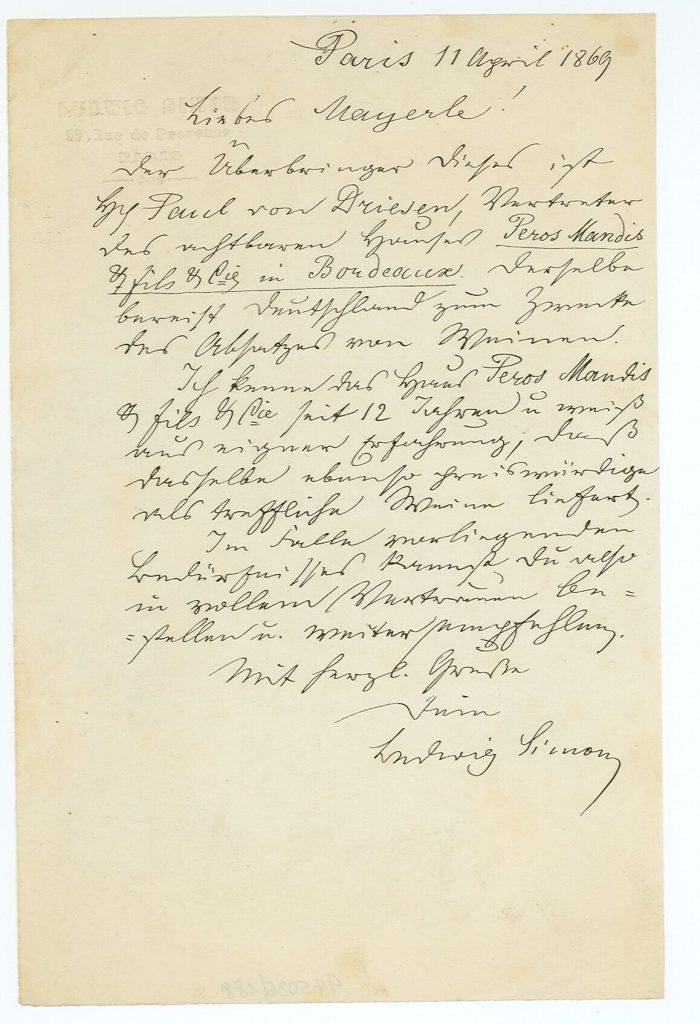 Paris 11 April 1869
LUDWIG SIMON
59, Rue de Provence
PARIS
Liebes Mayerle!
Der Überbringer dieses ist
Hr Paul von Driesen, Vertreter
des achtbaren Hauses Peros Mandis
& fils & Cie in Bordeaux. Derselbe
bereist Deutschland zum Zwecke
des Absatzes von Weinen.
Ich kenne das Haus Peros Mandis
& fils & Cie seit 12 Jahren u weiß
aus eigner Erfahrung, daß
dasselbe ebenso preiswürdige
als treffliche Weine liefert.
Im Falle vorliegenden
Bedürfnisses kannst Du also
in vollem Vertrauen be=
=stellen u. weiter empfehlen.
Mit herzl. Gruße
Dein
Ludwig Simon